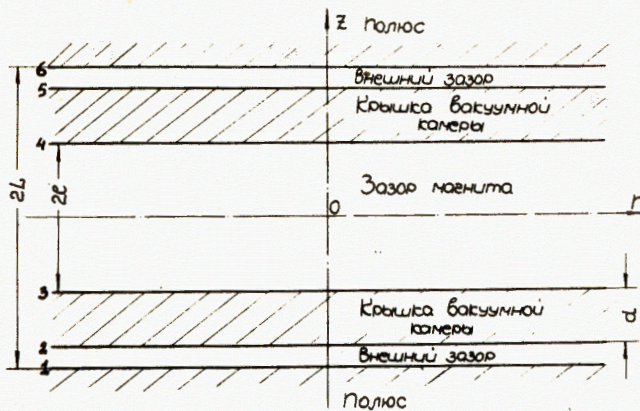 z Полюс
6
Внешний зазор
5
Крышка вакуумной
камеры
4
2L
2l
Зазор магнита
0
r
3
Крышка вакуумной
камеры
d
2
Внешний зазор
1
Полюс